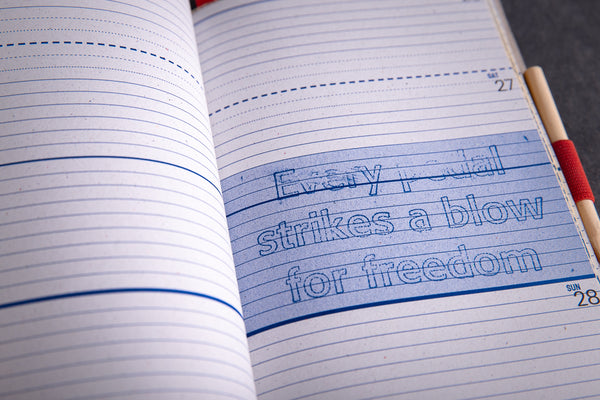 SAT
27
Every pedal
strikes a blow
for freedom
SUN
28